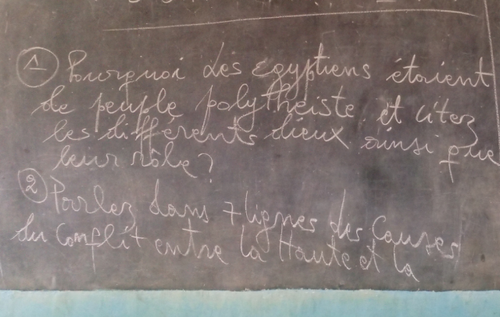 ① Pourquoi les égyptiens étaient
de peuple polythéiste et citez
les différents dieux ainsi que
leur rôle?
② Parlez dans 7 lignes des causes
du conflit entre la Haute et la